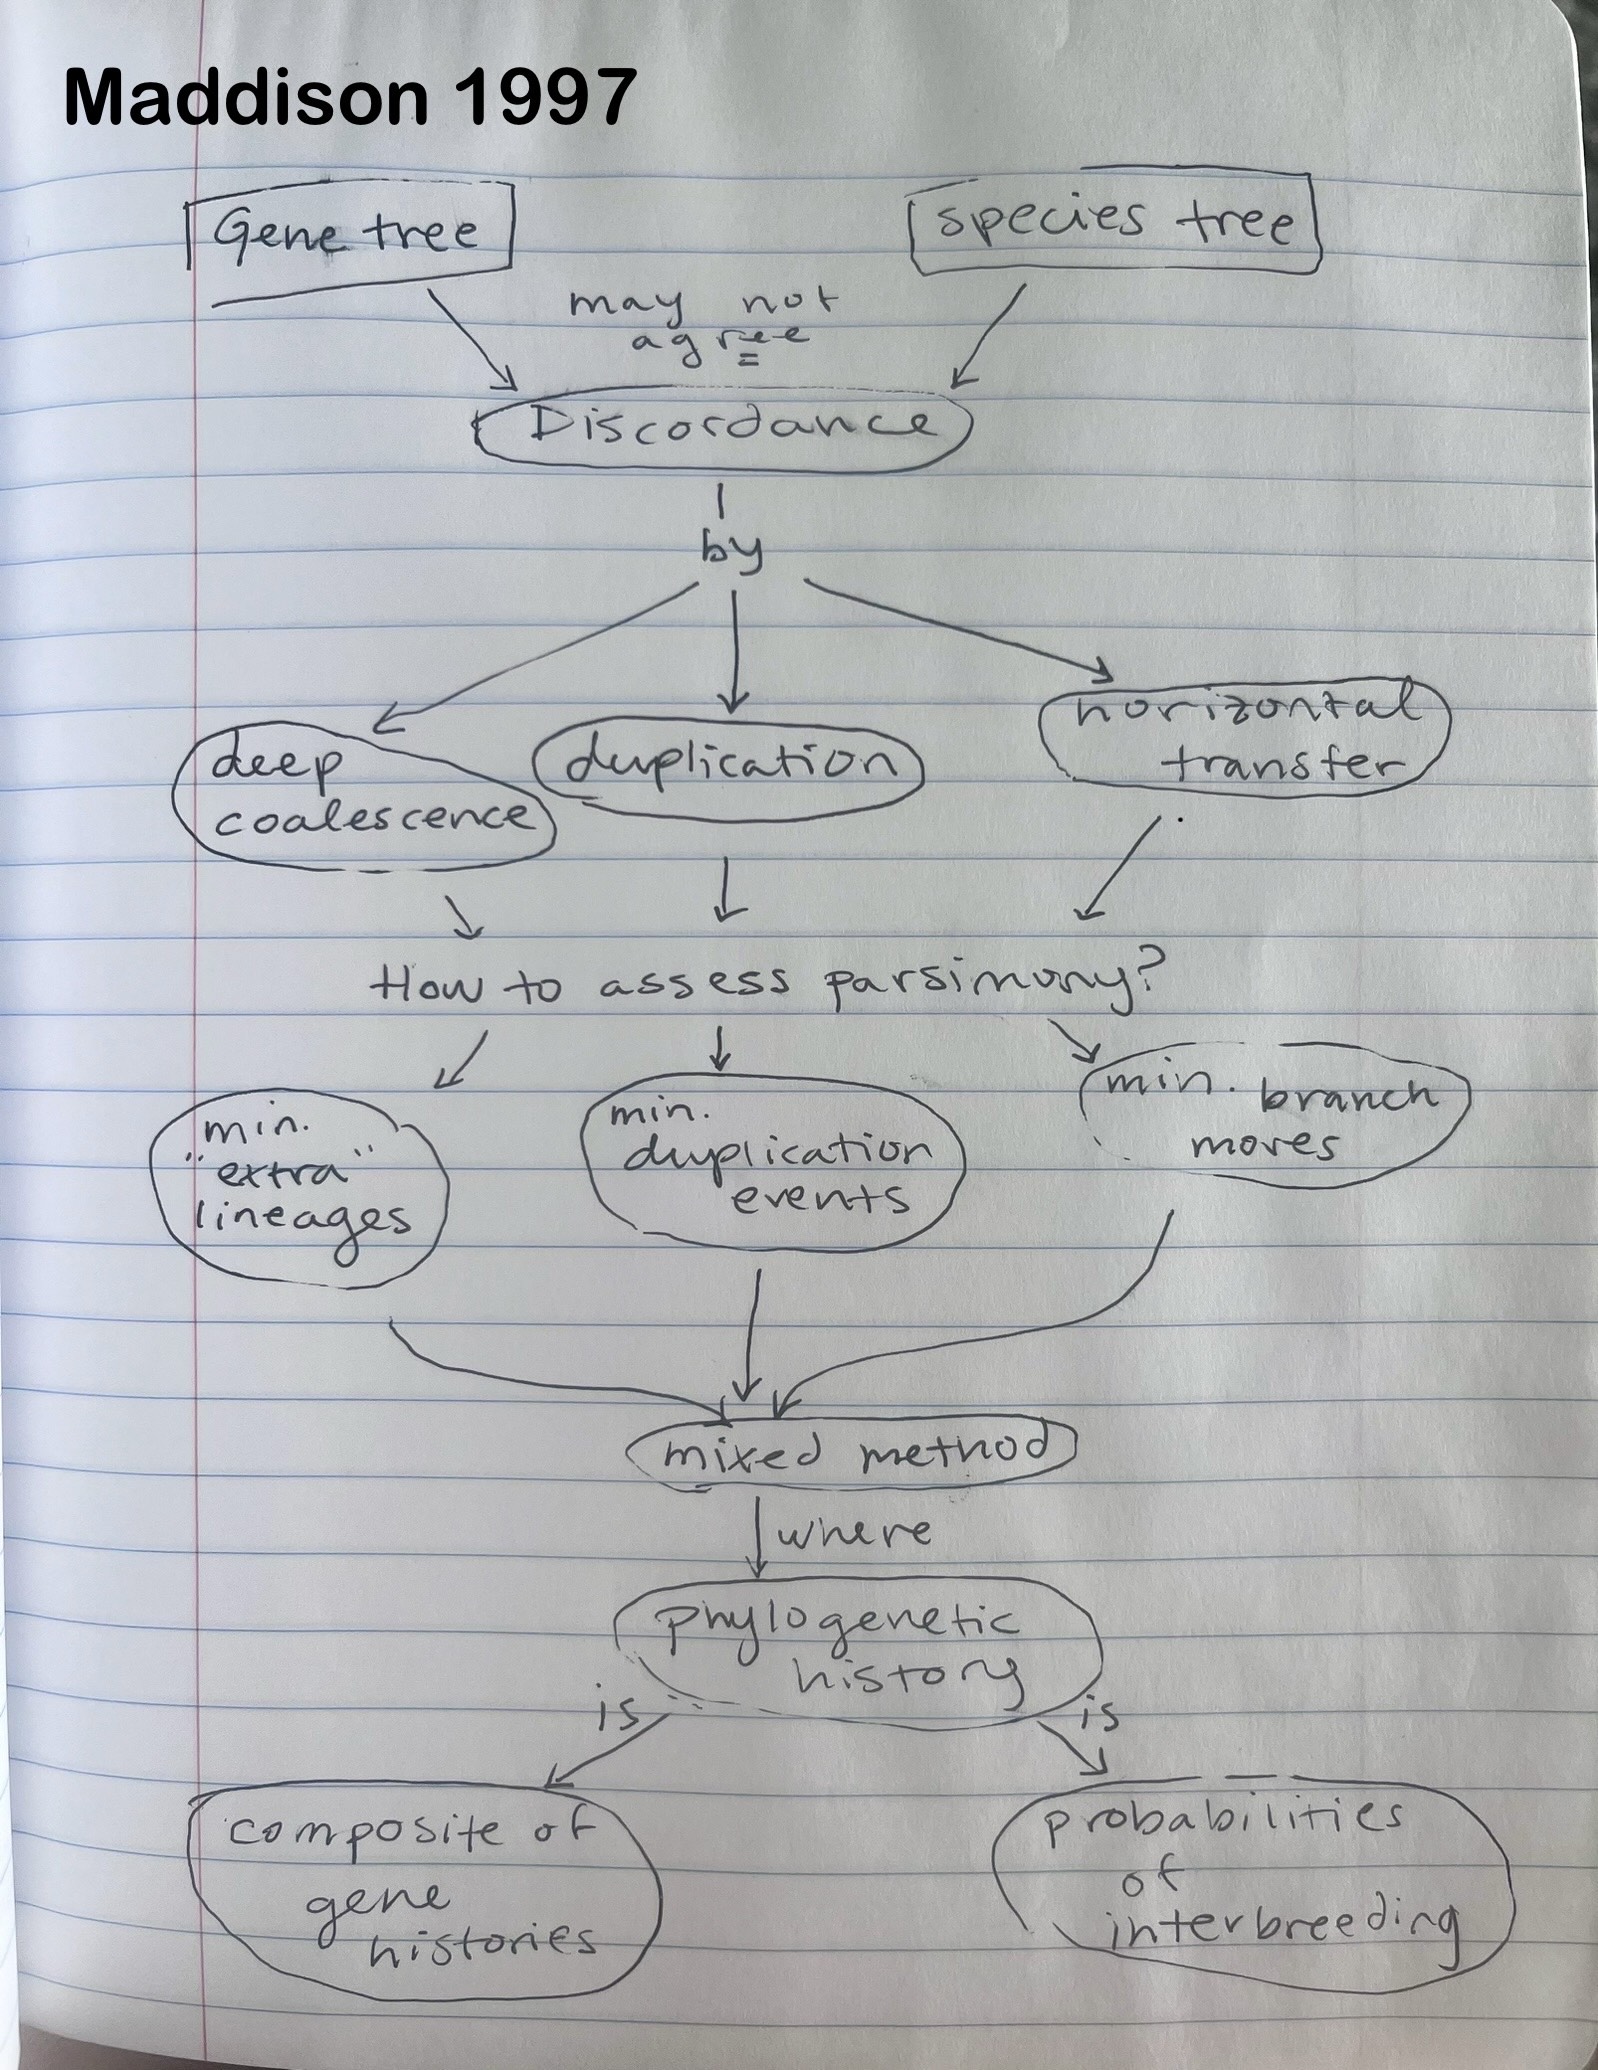 Maddison 1997
Gene tree
species tree
may not
agree
Discordance
by
deep
coalescence
duplication
horizontal
transfer
How to assess parsimony?
min.
"extra"
lineages
min.
duplication
events
min. branch
moves
mixed method
where
phylogenetic
history
is
is
composite of
gene
histories
probabilities
of
interbreeding